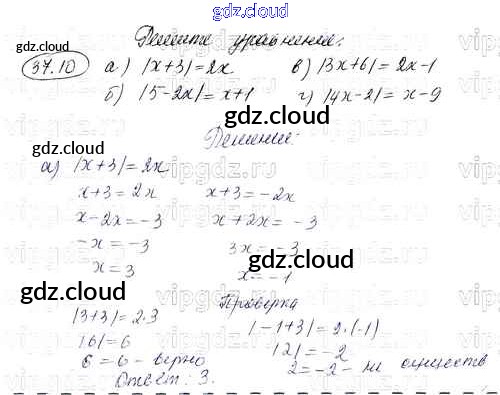 gdz.cloud
Решите уравнения:
37.10 а) |x+3|=2x в) |3x+6|=2x-1
б) |5-2x|=x+1 г) |4x-2|=x-9
gdz.cloud gdz.cloud
Решение:
gdz.cloud
а) |x+3|=2x
x+3=2x x+3=-2x
x-2x=-3 x+2x=-3
-x=-3 3x=-3
x=3 x=-1
gdz.cloud
gdz.cloud
Проверка
|3+3|=2·3 |-1+3|=2·(-1)
|6|=6 |2|=-2
6=6-верно 2=-2- не существ
gdz.cloud
Ответ: 3.